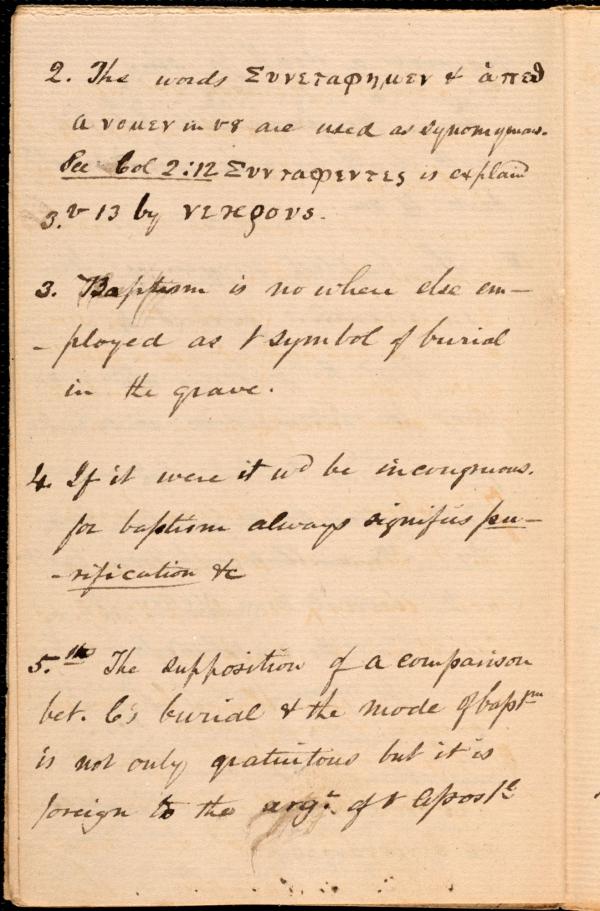 2. The words Συνεταφημεν & ἀπεθ
ανομεν in v8 are used as synonymous.
See Col 2:12 Συνταφεντες is explain
3. v 13 by νεκρους.
3. Baptism is no where else em-
-ployed as t symbol of burial
in the grave.
4. If it were it wd be incongruous.
for baptism always signifies pu-
-rification &c
5.th The supposition of a comparison
bet. C's burial & the mode of baptm
is not only gratuitous but it is
foreign to the argt of t Apostle